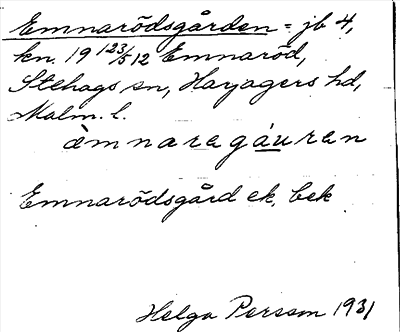 Emnarödsgården = jb 4,
kn. 19 123/512 Emnaröd,
Stehags sn, Harjagers hd,
Malm. l.
æ̀mnaragáuren
Emnarödsgård ek, bek
Helga Persson 1931